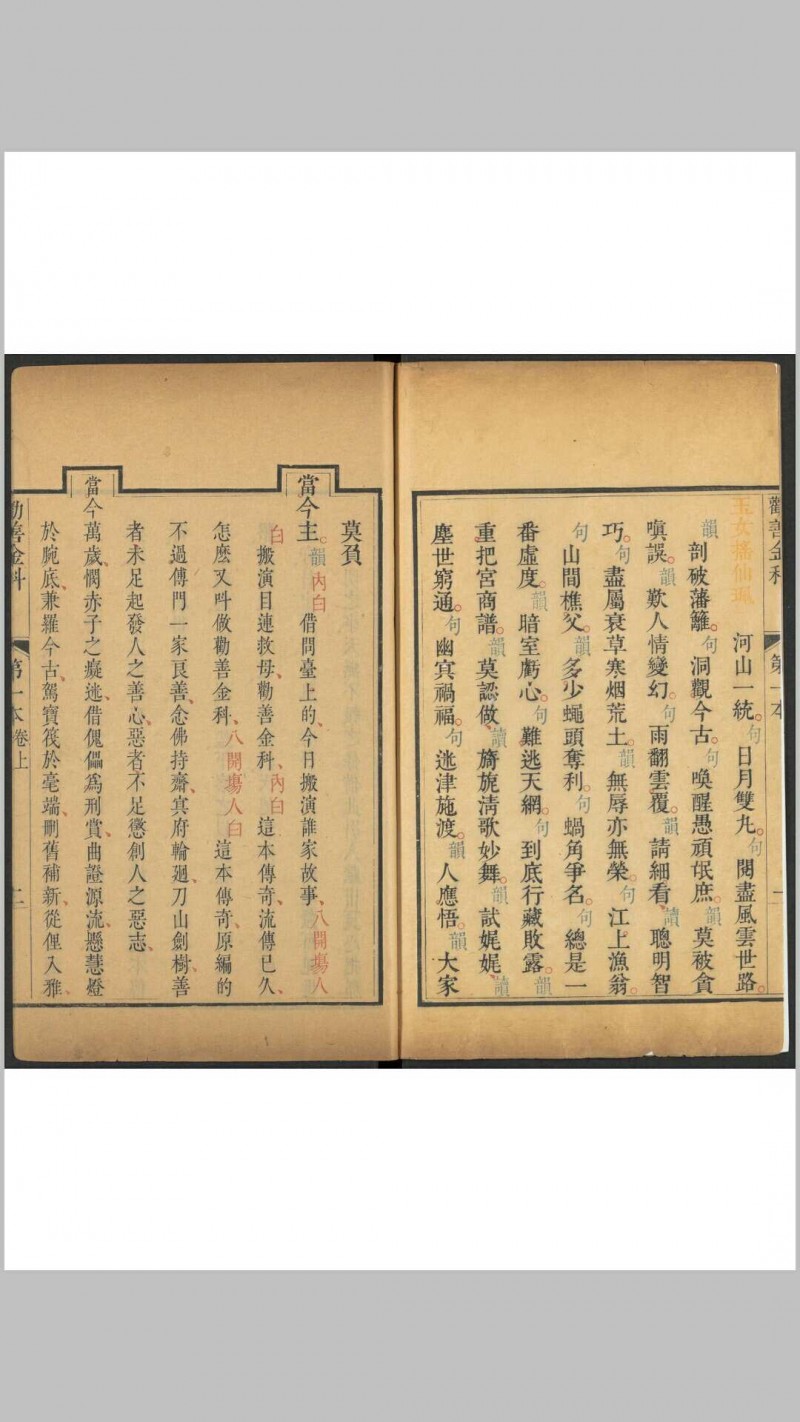 勸善金科 第一本 一
玉女搖仙珮 河山一統。句日月雙九。句閱盡風雲世路。
韻剖破藩籬。句洞觀今古。句喚醒愚頑氓庶。韻莫被貪
嗔誤。韻歎人情變幻。句雨翻雲覆。韻請細看、讀聰明智
巧。句盡屬衰草寒烟荒土。韻無辱亦無榮。句江上漁翁。
句山間樵父。韻多少蠅頭奪利。句蝸角爭名。句總是一
番虛度。韻暗室虧心。句難逃天網。句到底行藏敗露。韻
重把宮商譜。韻莫認做、讀旖旎淸歌妙舞。韻試娓娓、讀
塵世窮通。句幽冥禍福。句迷津施渡。韻人應悟。韻大家
莫負
當今主。韻內白借問臺上的、今日搬演誰家故事、八開場人
白搬演目連救母、勸善金科、內白這本傳奇、流傳已久、
怎麽又呌做勸善金科、八開場人白這本傳奇、原編的
不過傅門一家良善、念佛持齋、冥府輪廻、刀山劍樹、善
者未足起發人之善心、惡者不足懲創人之惡志、
當今萬歲、憫赤子之癡迷、借傀儡爲刑賞、曲證源流、懸慧燈
於腕底、兼羅今古、駕寶筏於毫端、刪舊補新、從俚入雅、
勸善金科 第一本卷上 二